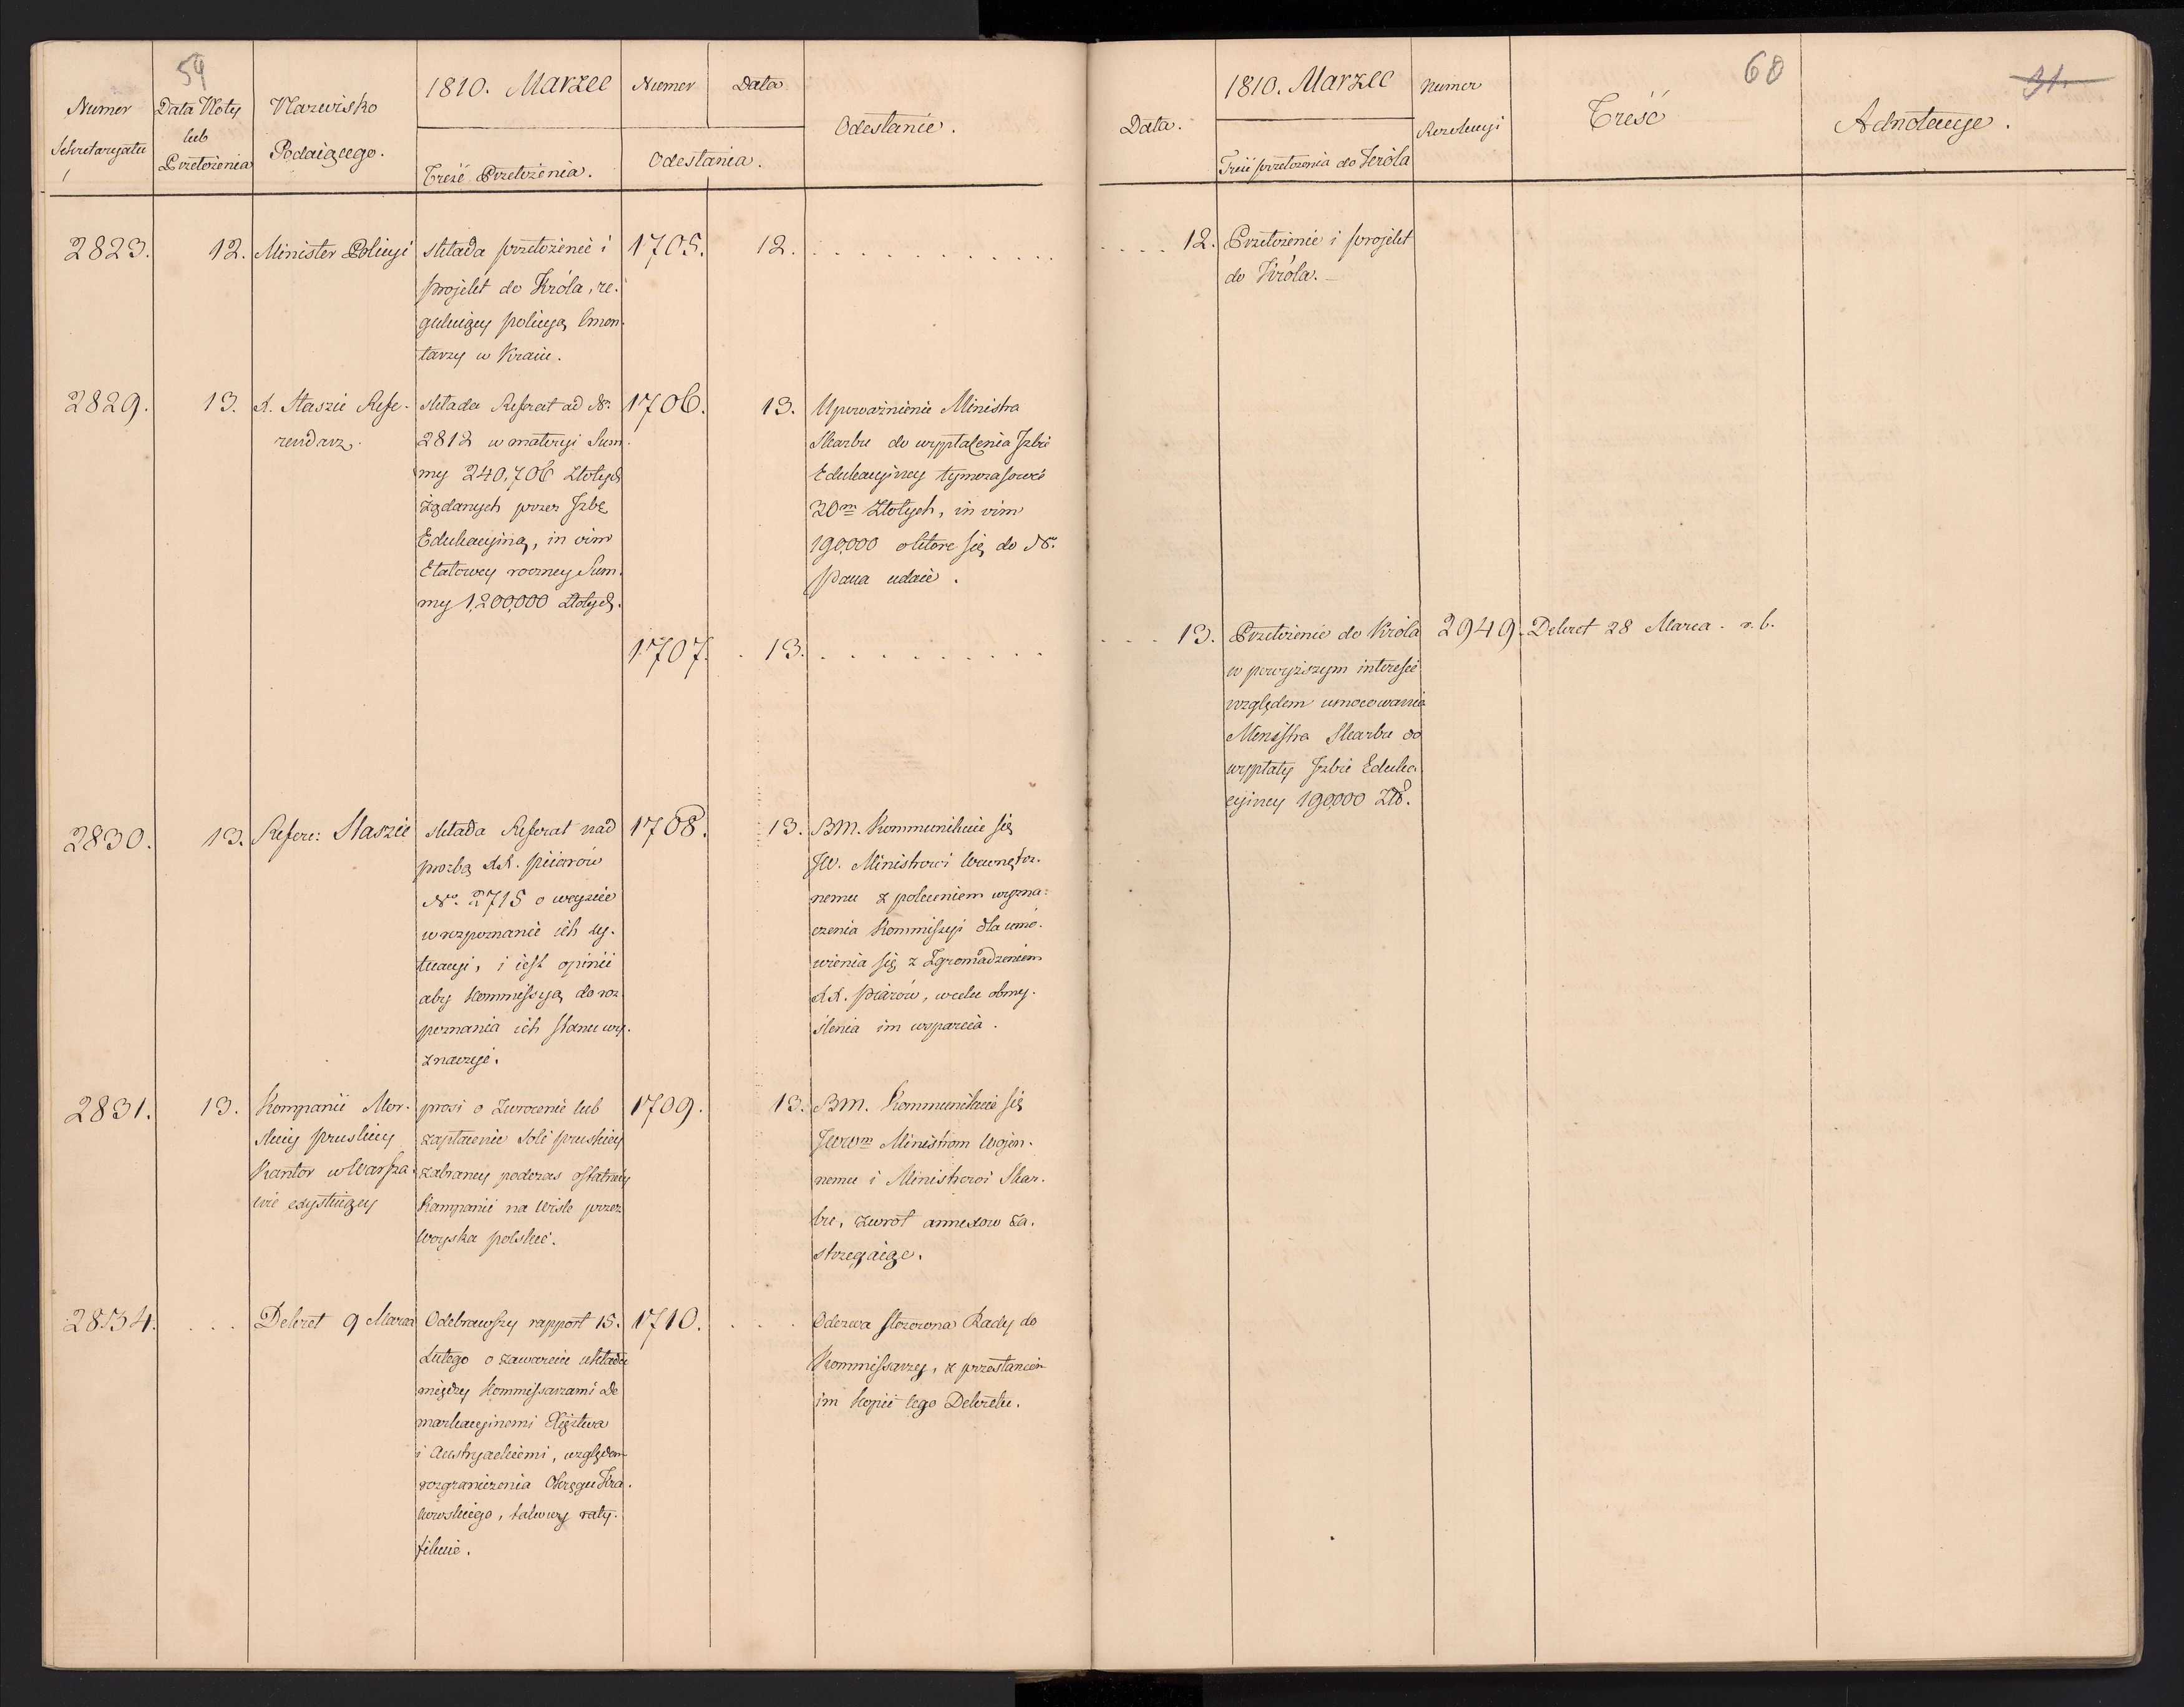 54
Numer
Sekretaryatu
Data Noty
lub
Przełożenia
Nazwisko
Podaiącego.
1810. Marzec
Treść Przełożenia.
Numer
Data
Odesłania.
Odesłanie.
2823.
12.
Minister Policyi
składa przełożenie i
projekt do Króla, re-
guluiący policyą Cmen-
tarzy w Kraiu.
1705.
12.
2829.
13.
X. Staszic Refe-
rendarz.
składa Referat ad Nr.
2812 w materyi Sum-
my 240,706 Złotych
żądanych przez Izbę
Edukacyiną, in vim
Etatowey roczney Sum-
my 1,200,000 Złotych.
1706.
13.
Upoważnienie Ministra
Skarbu do wypłacenia Izbie
Edukacyiney tymczasowie
30m Złotych, in vim
190,000 o które się do N.
Pana udaie.
1707.
13.
2830.
13.
Refere: Staszic
składa Referat nad
prozbą XX. Piiarów
Nr. 2715 o weyście
w rozpoznanie ich sy-
tuacyi, i iest opinii
aby Kommissyą do roz-
poznania ich stanu wy-
znaczyć.
1708.
13.
BM. Kommunikuie się
JW. Ministrowi Wewnętrz-
nemu z poleceniem wyzna-
czenia Kommissyi dla umó-
wienia się z Zgromadzeniem
XX. Piarów, w celu obmy-
ślenia im wsparcia.
2831.
13.
Kompanii Mor-
skiey pruskiey
Kantor w Warsza-
wie exystuiący
prosi o zwrócenie lub
zapłacenie soli pruskiey
zabraney podczas ostatniey
Kampanii na Wiśle przez
Woyska polskie.
1709.
13.
BM. Kommunikuie się
JWWm Ministrom Wojen-
nemu i Ministrowi Skar-
bu, zwrot annexow za-
strzegaiąc.
2834.
Dekret 9 Marca
Odebrawszy rapport 15.
Lutego o zawarciu układu
między Kommissarzami De
markacyinemi Xięstwa
i Austryackiemi, względem
rozgraniczenia Okręgu Kra-
kowskiego, takowy raty-
fikuie.
1710.
Odezwa stosowna Rady do
Kommissarzy, z przesłaniem
im kopii tego Dekretu.
68
31.
Data.
1810. Marzec
Treść przełożenia do Króla
Numer
Rezolucyi
Treść
Adnotacye.
12.
Przełożenie i projekt
do Króla.
13.
Przełożenie do Króla
w powyższym interesie
względem umocowania
Ministra Skarbu do
wypłaty Izbie Eduka-
cyiney 190,000 Zł.
2949.
Dekret 28 Marca r. b.